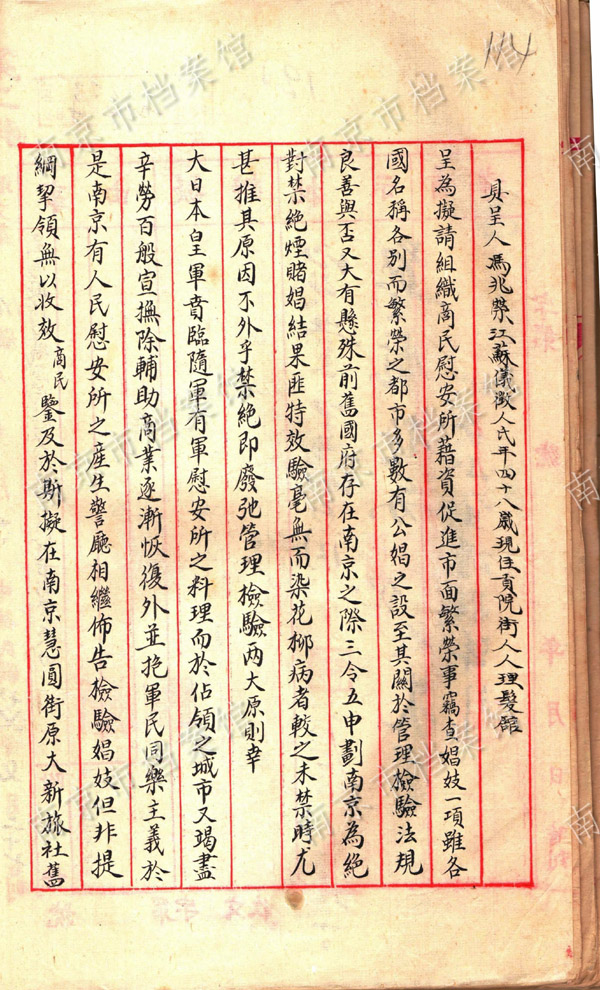 114
具呈人馮兆榮江蘇儀徵人民年四十八歲現住貢院街人人理髮館
呈為擬請組織商民慰安所藉資促進市面繁榮事竊查娼妓一項雖各
國名稱各別而繁榮之都市多數有公娼之設至其關於管理檢驗法規
良善與否又大有懸殊前舊國府存在南京之際三令五申劃南京為絕
對禁絕煙賭娼結果匪特效驗毫無而染花柳病者較之未禁時尤
甚推其原因不外乎禁絕即廢弛管理檢驗兩大原則幸
大日本皇軍賁臨隨軍有軍慰安所之料理而於佔領之城市又竭盡
辛勞百般宣撫除輔助商業逐漸恢復外並抱軍民同樂主義於
是南京有人民慰安所之產生警廳相繼佈告檢驗娼妓但非提
綱挈領無以收效商民鑒及於斯擬在南京慧圓街原大新旅社舊
南京市档案馆